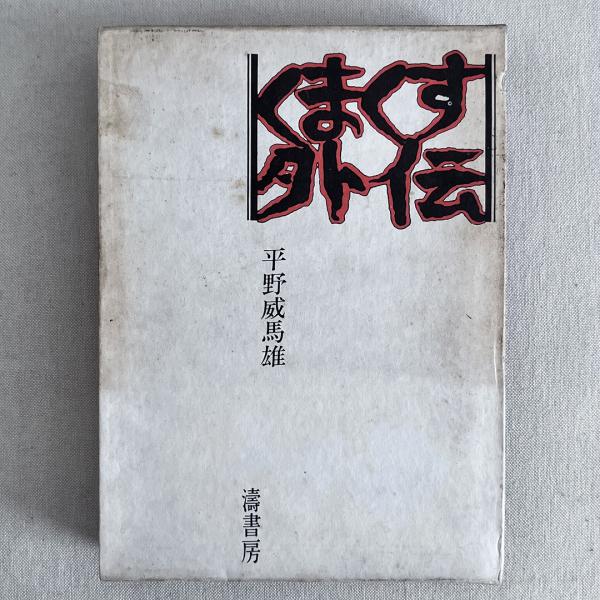 くまくす
外伝
平野威馬雄
濤書房